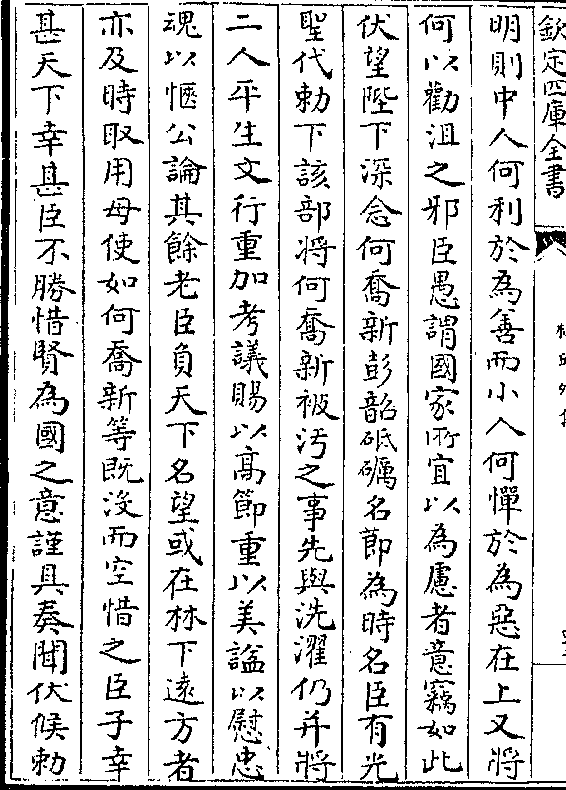 欽定四庫全書
明則中人何利於為善而小人何憚於為惡在上又將
何以勸沮之邪臣愚謂國家所宜以為慮者意竊如此
伏望陛下深念何喬新彭韶砥礪名節為時名臣有光
聖代勅下該部將何喬新被汚之事先與洗濯仍并將
二人平生文行重加考議賜以髙節重以美諡以慰忠
魂以愜公論其餘老臣負天下名望或在林下遠方者
亦及時取用毋使如何喬新等既沒而空惜之臣子幸
甚天下幸甚臣不勝惜賢為國之意謹具奏聞伏候勅